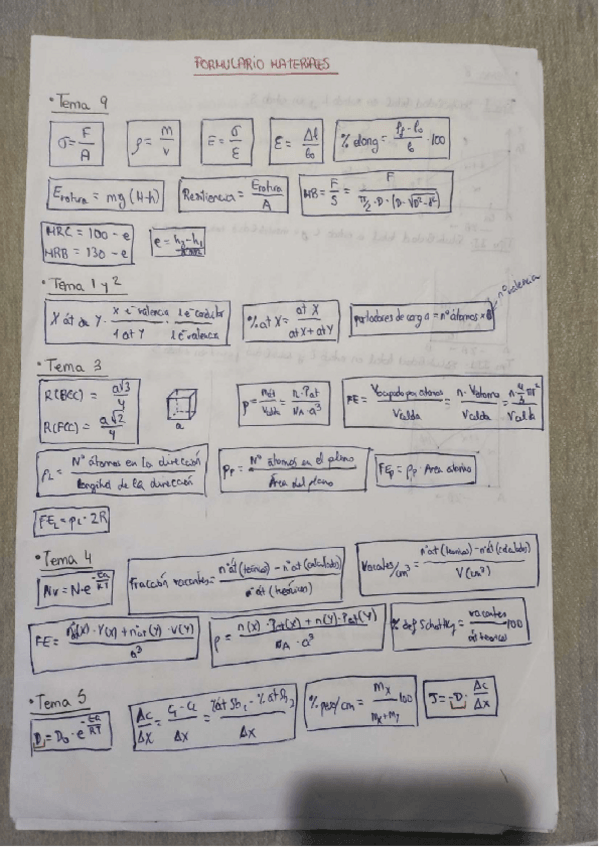 FORMULARIO MATERIALES
• Tema 9
σ = F/A   ρ = m/v   E = σ/ε   ε = Δl/l₀   % elong = (lf - l₀)/l₀ · 100
Erotura = mg (H-h)   Resiliencia = Erotura/A   HB = F/S = F/(π/2 · D · (D - √(D² - d²)))
HRC = 100 - e
HRB = 130 - e   e = (h₂ - h₁)/
• Tema 1 y 2
nº valencia
X át de Y · (X e⁻ valencia/1 at Y) · (1 e⁻ conductor/1 e⁻ valencia)   % at X = at X/(at X + at Y)   portadores de carga = nº átomos ×
• Tema 3
R(BCC) = a√3/4
R(FCC) = a√2/4   a   ρ = /Vcelda = n · Pat/(NA · a³)   FE = Vocupado por átomos/Vcelda = n · Vátomo/Vcelda = n 4/3 πr³/Vcelda
ρL = Nº átomos en la dirección/longitud de la dirección   ρP = Nº átomos en el plano/Área del plano   FEp = ρp · Area atomo
FEL = ρL · 2R
• Tema 4
Nv = N · e^(-Ea/RT)   Fracción vacantes = (nº át (teórico) - nº at (calculados))/nº át (teóricos)   Vacates/cm³ = (nº at (teorico) - nº at (calculados))/V (cm³)
FE = (nat(X) · V(X) + nat(Y) · V(Y))/a³   ρ = (n(X) · Pat(X) + n(Y) · Pat(Y))/(NA · a³)   % def Schottky = vacates/ · 100
• Tema 5
D = D₀ · e^(-Ea/RT)   Δc/Δx = (C₁ - C₂)/Δx = (%át Sb₁ - %át Sb₂)/Δx   % peso/ = mx/(mx + my) · 100   J = -D · Δc/Δx